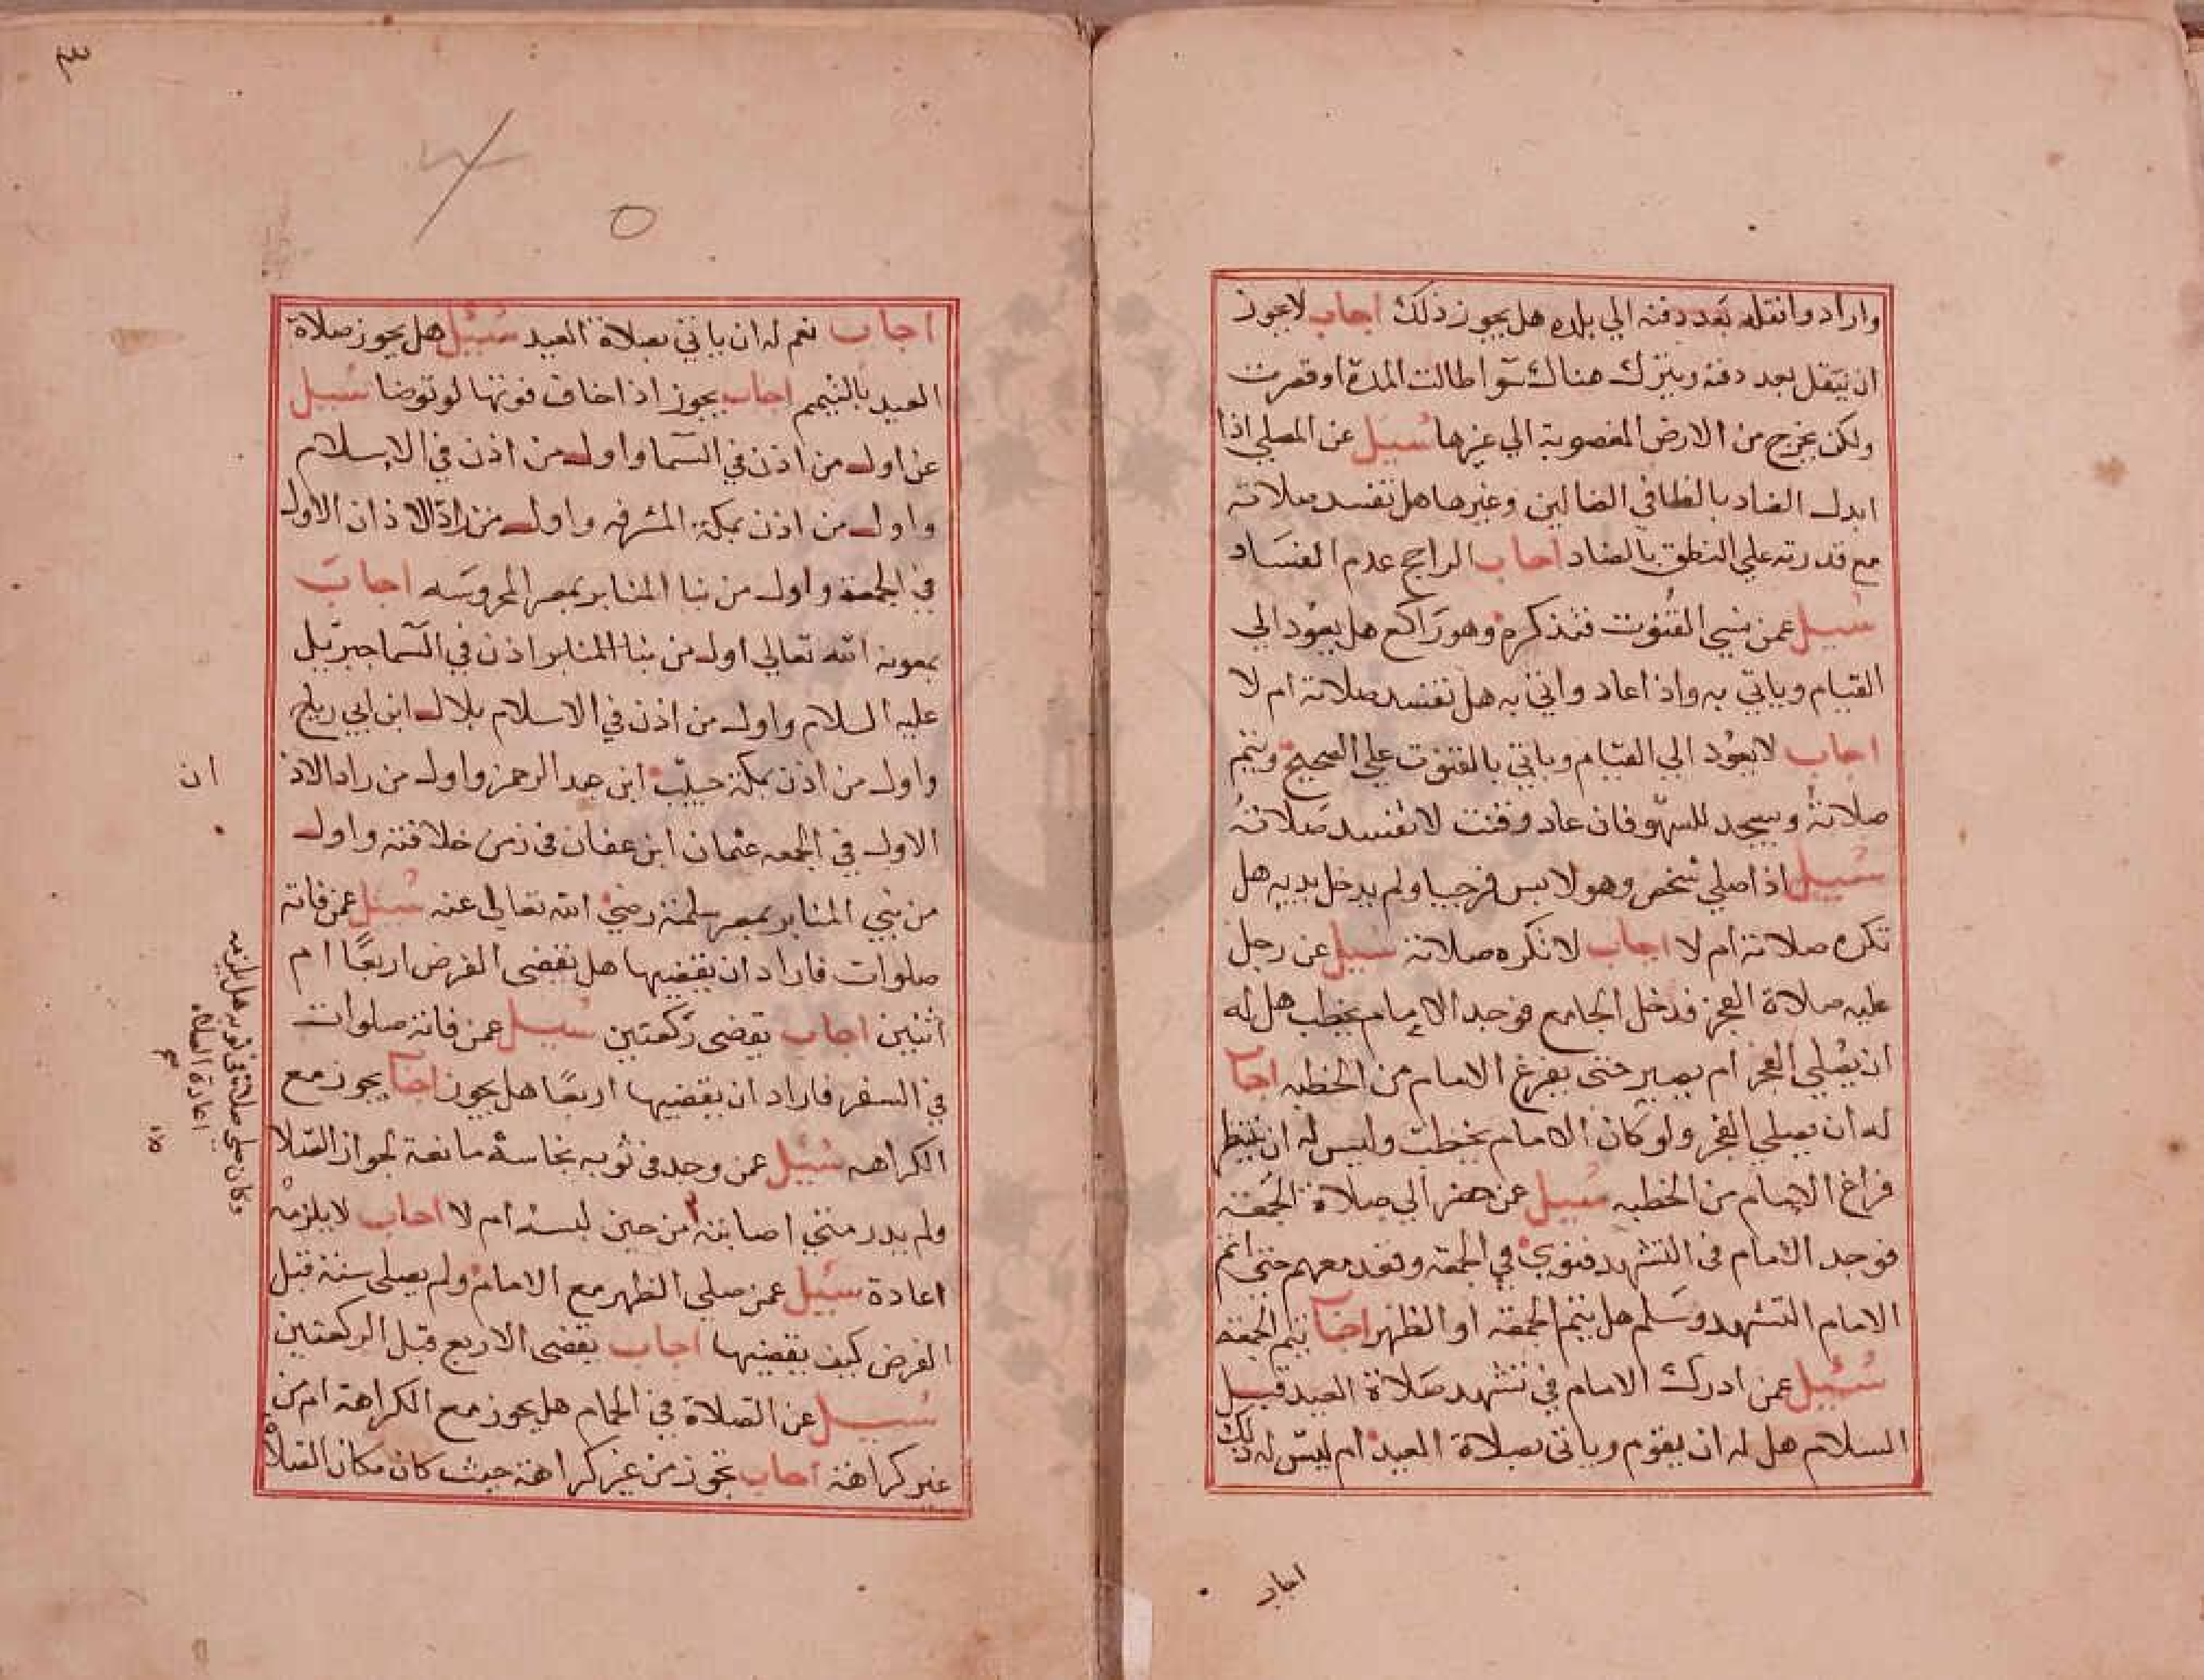 وارادوا نقله بعد دفنه الي بلده هل يجوز ذلك اجاب لا يجوز
ان ينقل بعد دفنه ويترك هناك سوآ طالت المدة او قصرت
ولكن يخرج من الارض المغصوبة الي غيرها سيل عن المصلي اذا
ابدل الضاد بالظا في الضالين وغيرها هل تفسد صلاته
مع قدرته علي النطق بالضاد اجاب الراجح عدم الفساد
سيل عمن نسي القنوت فتذكره وهو راكع هل يعود الي
القيام وياتي به واذا عاد واتي به هل تفسد صلاته ام لا
اجاب لا يعود الي القيام وياتي بالقنوت علي الصحيح ويتم
صلاته ويسجد للسهو فان عاد وقنت لا تفسد صلاته
سيل اذا صلي شخص وهو لابس فرجيا ولم يدخل يديه هل
تكره صلاته ام لا اجاب لا تكره صلاته سيل عن رجل
عليه صلاة الفجر فدخل الجامع فوجد الامام يخطب هل له
ان يصلي الفجر ام يصير حتي يفرغ الامام من الخطبه اجاب
له ان يصلي الفجر ولو كان الامام يخطب وليس له ان ينتظر
فراغ الامام من الخطبه سيل عن حضر الي صلاة الجمعة
فوجد الامام في التشهد فنوي في الجمعة وقعد معهم حتي اتم
الامام التشهد وسلم هل يتم الجمعة او الظهر اجاب يتم الجمعة
سئيل عمن ادرك الامام في تشهد صلاة العيد قبيل
السلام هل له ان يقوم وياتي بصلاة العيد ام ليس له ذلك
اجاب
اجاب نعم له ان ياتي بصلاة العيد سئيل هل يجوز صلاة
العيد بالتيمم اجاب يجوز اذا خاف فوتها لو توضا سيل
عن اول من اذن في السما واول من اذن في الاسلام
واول من اذن بمكة المشرفه واول من زاد الاذان الاول
في الجمعة واول من بنا المنابر بمصر المحروسه اجاب
بعونه الله تعالي اول من بنا المنابر اذن في السما جبريل
عليه السلام واول من اذن في الاسلام بلال ابن ابي رباح
واول من اذن بمكة حبيب ابن عبد الرحمن واول من زاد الاذ
ان
الاول في الجمعه عثمان ابن عفان في زمن خلافته واول
من بني المنابر بمصر سلمة رضي الله تعالي عنه سئيل عمن فاته
صلوات فاراد ان يقضيها هل يقضي الفرض اربعا ام
اثنين اجاب يقضي ركعتين سيل عمن فاته صلوات
في السفر فاراد ان يقضيها اربعا هل يجوز اجاب يجوز مع
الكراهه سئيل عمن وجد في ثوبه نجاسة مانعة لجواز الصلاة
ولم يدر متي اصابته امن حين لبسه ام لا اجاب لا يلزمه
اعادة سئيل عمن صلي الظهر مع الامام ولم يصلي سنة قبل
الفرض كيف يقضيها اجاب يقضي الاربع قبل الركعتين
سيل عن الصلاة في الحمام هل يجوز مع الكراهة ام من
غير كراهة اجاب تجوز من غير كراهة حيث كان مكان الصلاة
وكان صلي صلاة في ثوبه هل يلزمه
اعادة الصلاة